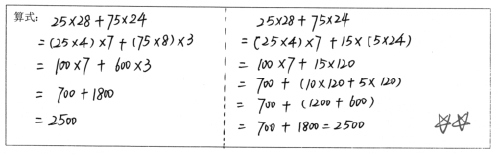 算式: 25×28+75×24
=(25×4)×7+(75×8)×3
=100×7+600×3
= 700+1800
= 2500
25×28+75×24
=(25×4)×7+15×(5×24)
=100×7+15×120
= 700+(10×120+5×120)
= 700+(1200+600)
= 700+1800=2500